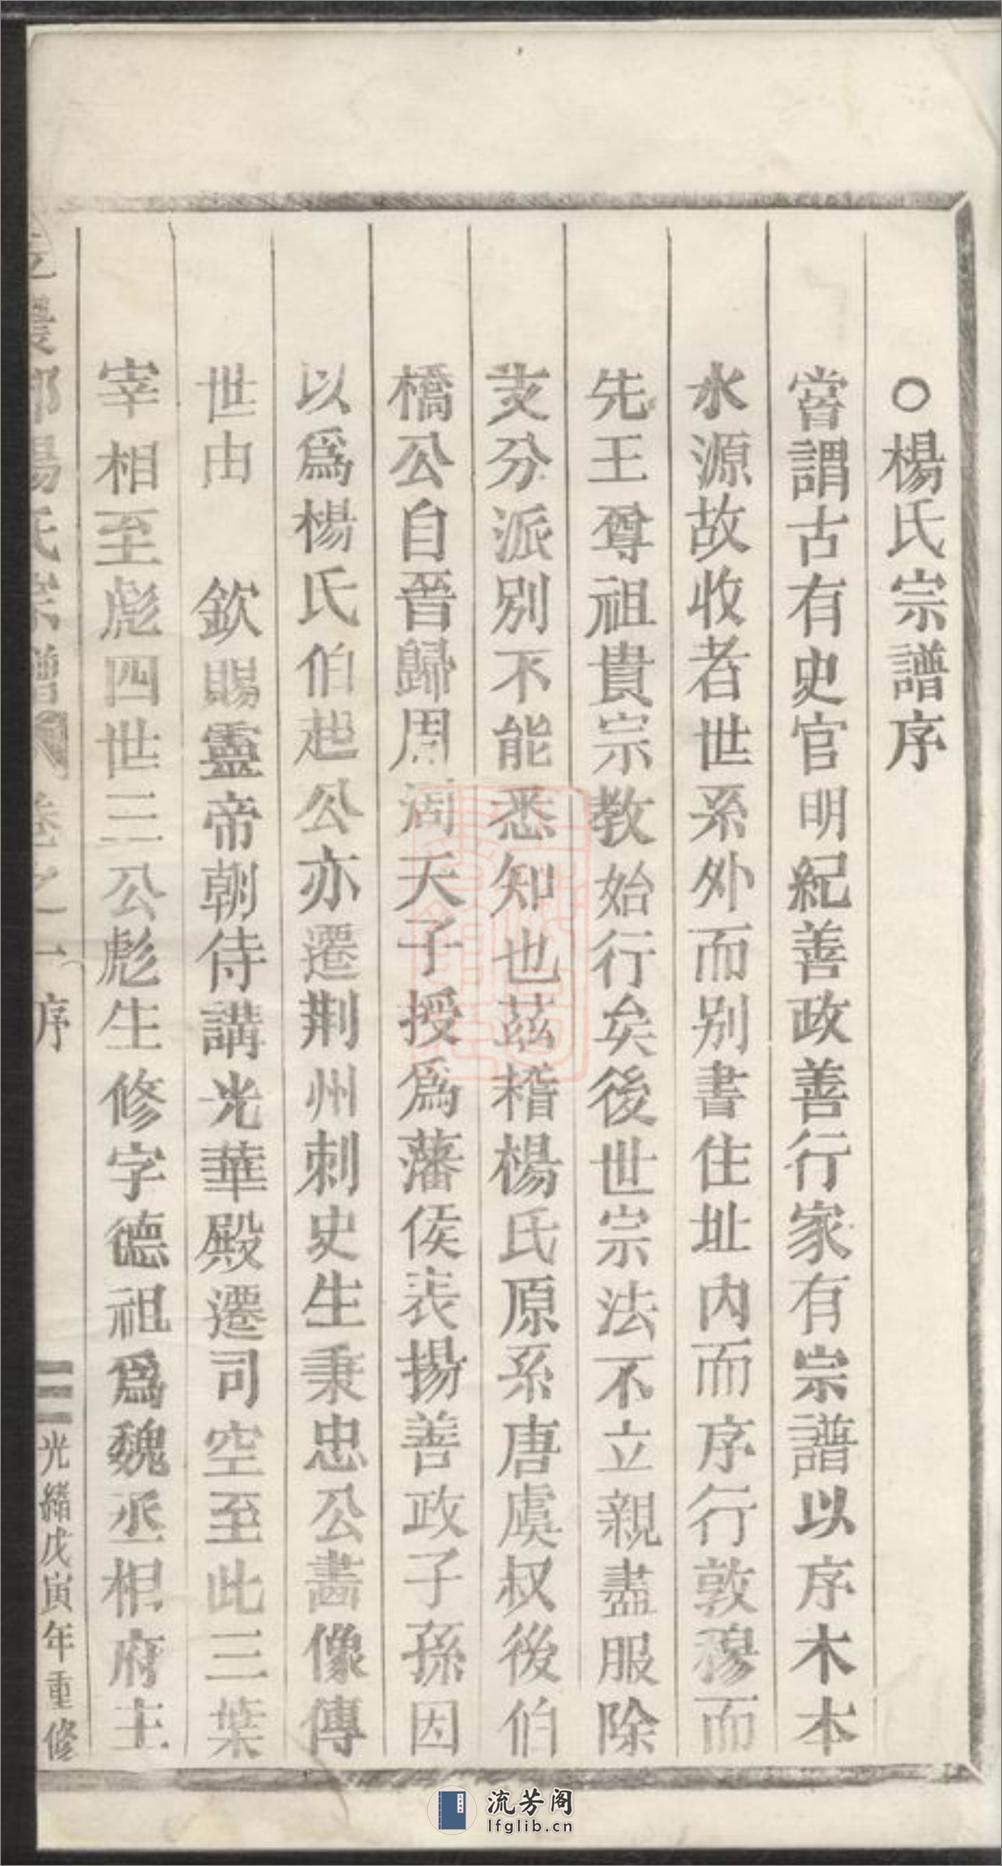 ○楊氏宗譜序
嘗謂古有史官明紀善政善行家有宗譜以序木本
水源故收者世系外而别書住址内而序行敦穆而
先王尊祖貴宗教始行矣後世宗法不立親盡服除
支分派别不能悉知也茲稽楊氏原系唐虞叔後伯
橋公自晉歸周周天子授爲藩侯表揚善政子孫因
以爲楊氏伯起公亦遷荆州刺史生秉忠公畵像傳
世由　欽賜靈帝朝侍講光華殿遷司空至此三葉
宰相至彪四世三公彪生修字德祖爲魏丞相府主
楊氏宗譜卷之一序
光緒戊寅年重修
流芳阁
lfglib.cn